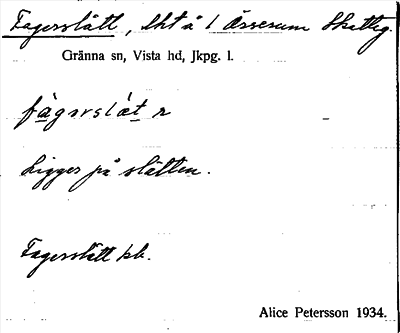 Fagerslätt, lht å 1 Åsserum Skatteg.
Gränna sn, Vista hd, Jkpg. l.
fàgərslát n
Ligger på slätten.
Fagerslätt kb.
Alice Petersson 1934.